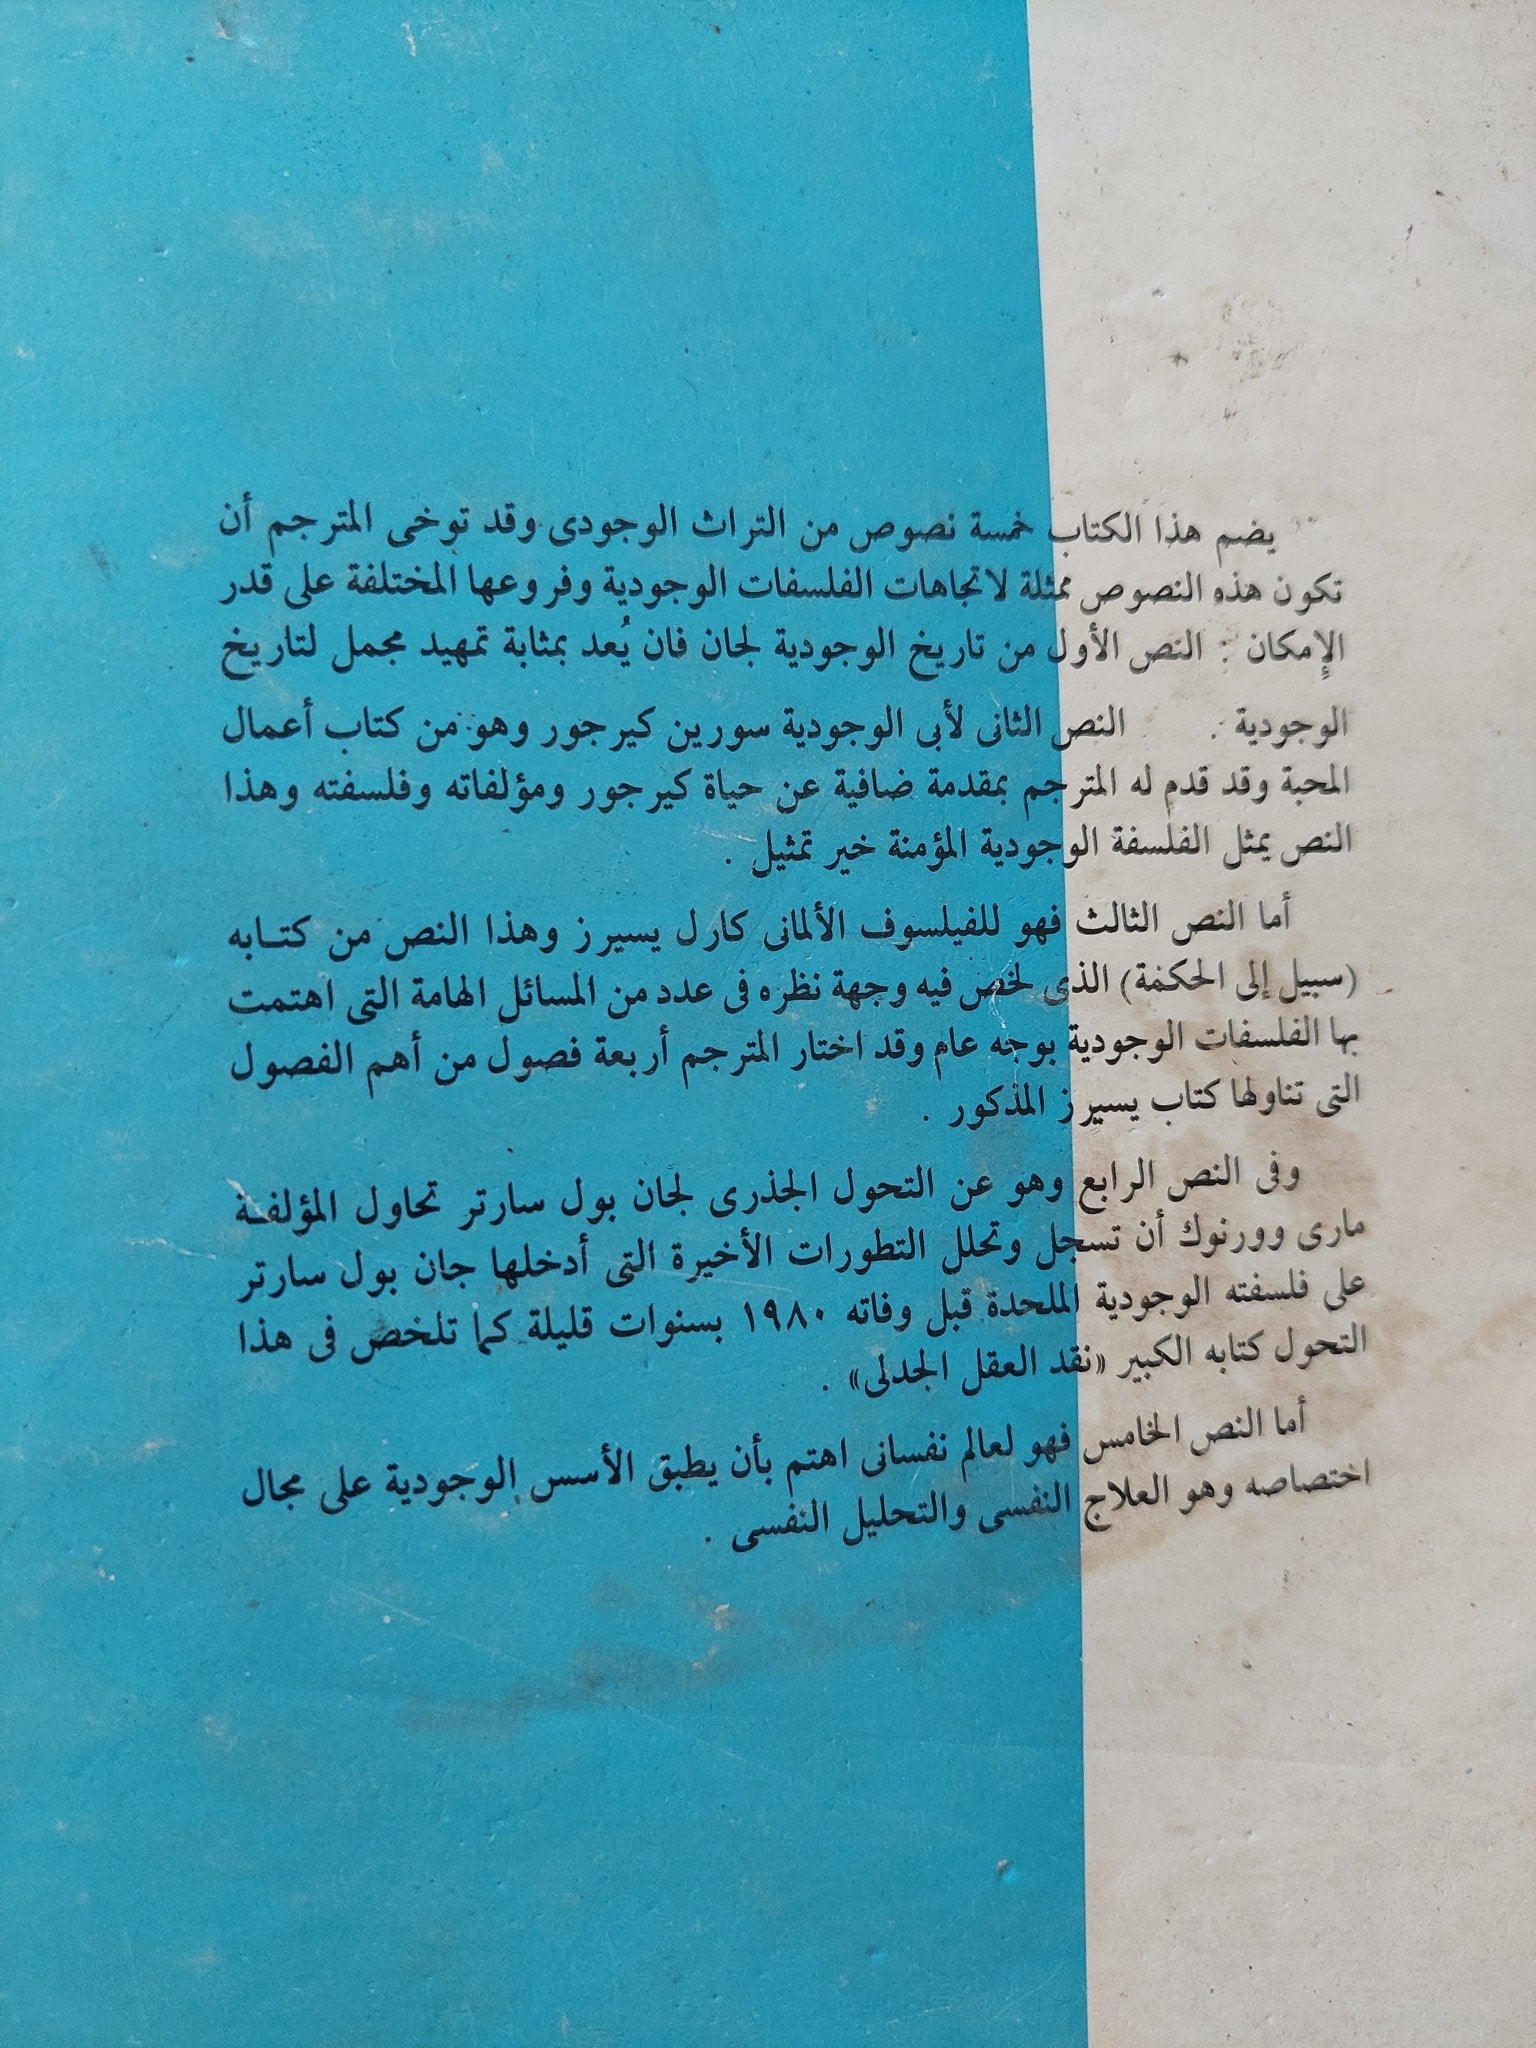 يضم هذا الكتاب خمسة نصوص من التراث الوجودى وقد توخى المترجم أن
تكون هذه النصوص ممثلة لاتجاهات الفلسفات الوجودية وفروعها المختلفة على قدر
الإِمكان : النص الأول من تاريخ الوجودية لجان فان يُعد بمثابة تمهيد مجمل لتاريخ
الوجودية . النص الثانى لأبى الوجودية سورين كيرجور وهو من كتاب أعمال
المحبة وقد قدم له المترجم بمقدمة ضافية عن حياة كيرجور ومؤلفاته وفلسفته وهذا
النص يمثل الفلسفة الوجودية المؤمنة خير تمثيل .
أما النص الثالث فهو للفيلسوف الألمانى كارل يسيرز وهذا النص من كتـابه
(سبيل إلى الحكمة) الذى لخص فيه وجهة نظره فى عدد من المسائل الهامة التى اهتمت
بها الفلسفات الوجودية بوجه عام وقد اختار المترجم أربعة فصول من أهم الفصول
التى تناولها كتاب يسيرز المذكور .
وفى النص الرابع وهو عن التحول الجذرى لجان بول سارتر تحاول المؤلفـة
مارى وورنوك أن تسجل وتحلل التطورات الأخيرة التى أدخلها جان بول سارتر
على فلسفته الوجودية الملحدة قبل وفاته ١٩٨٠ بسنوات قليلة كما تلخص فى هذا
التحول كتابه الكبير «نقد العقل الجدلى» .
أما النص الخامس فهو لعالم نفسانى اهتم بأن يطبق الأسس الوجودية على مجال
اختصاصه وهو العلاج النفسى والتحليل النفسى .